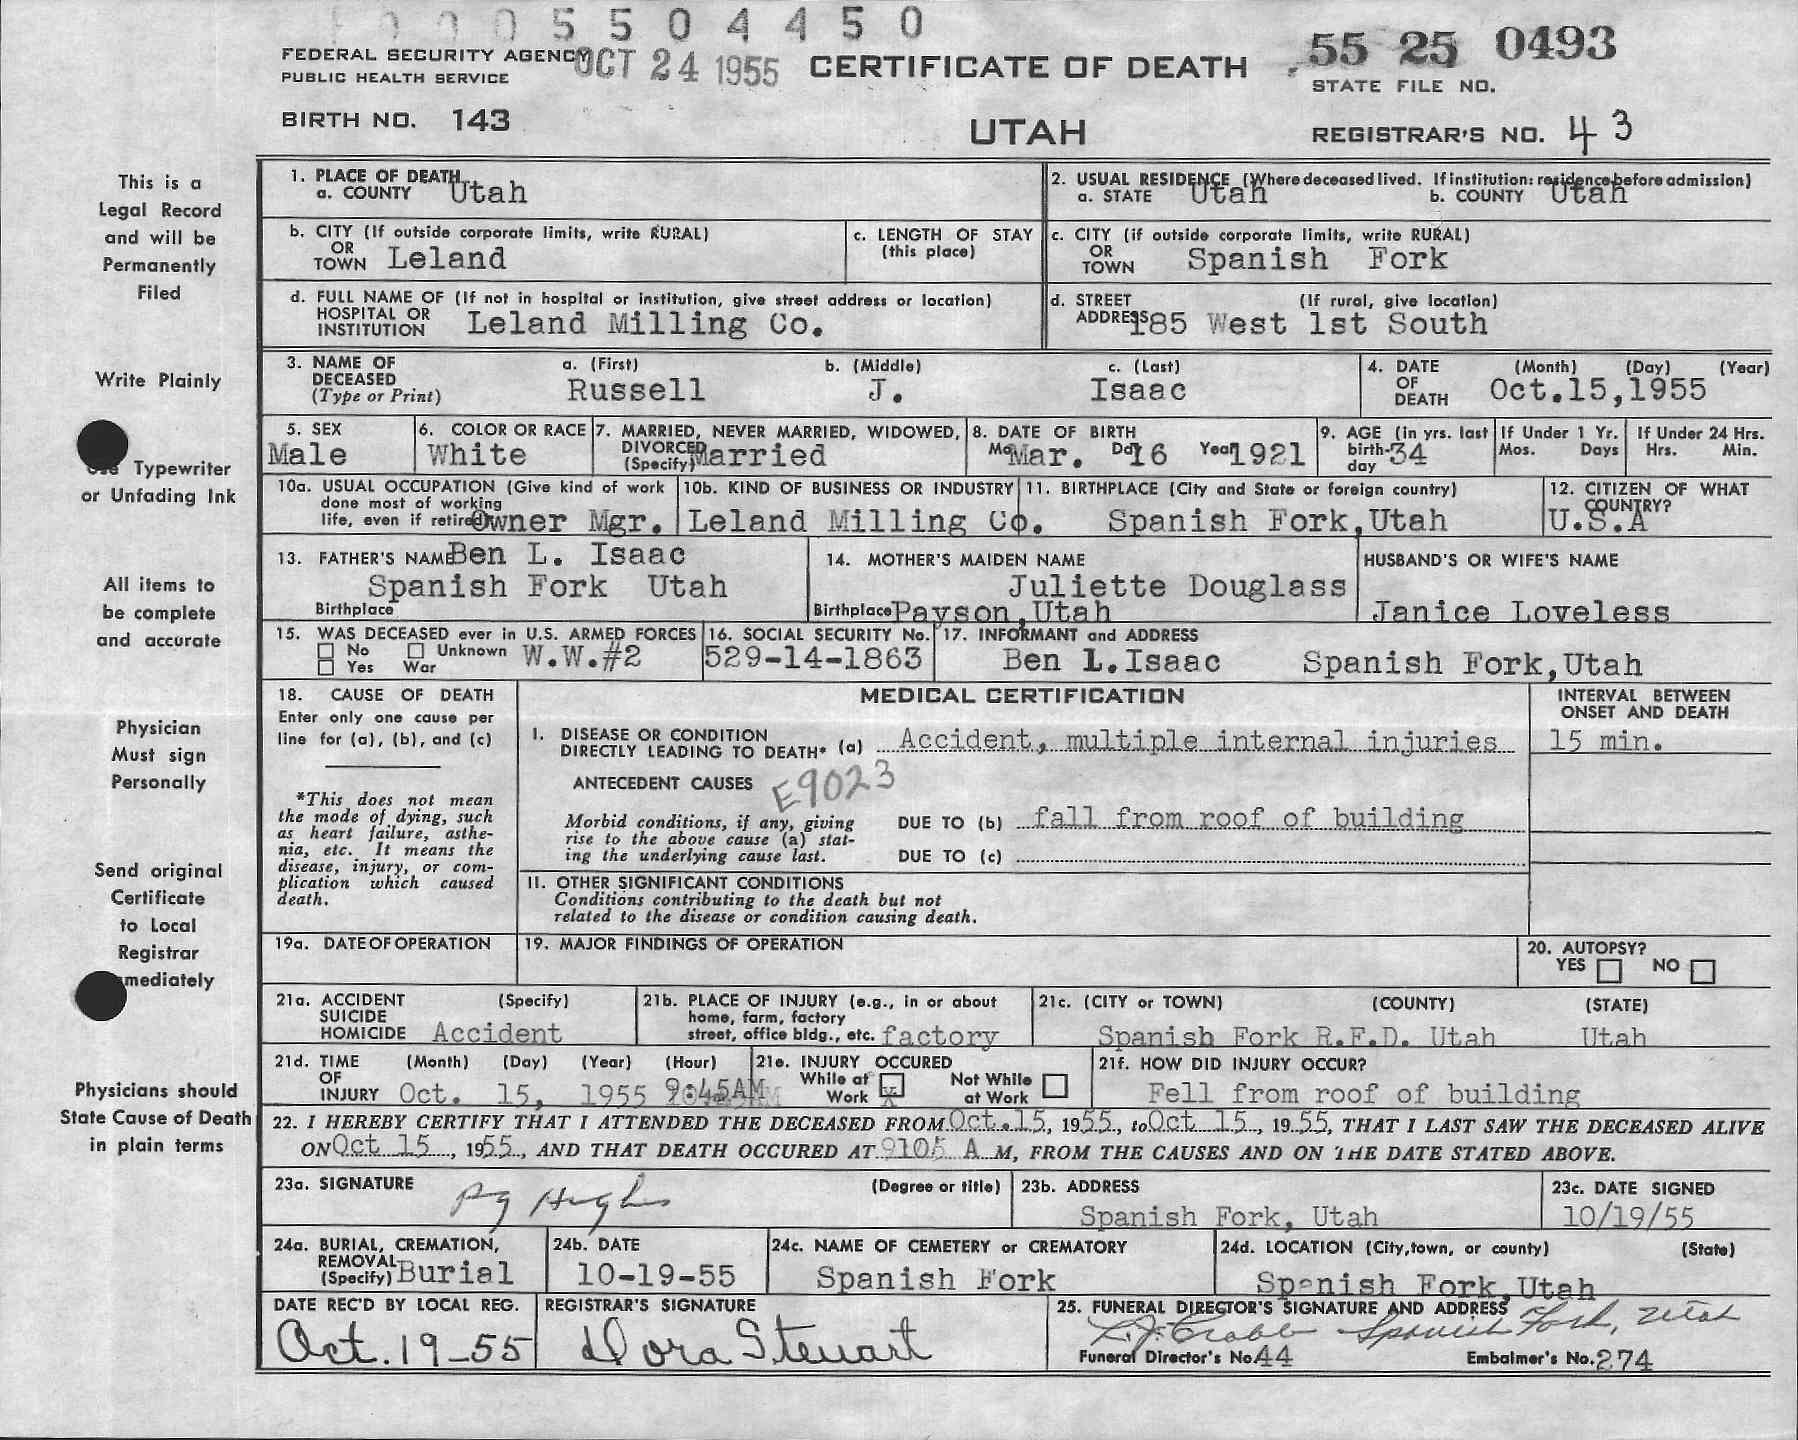 0005504450
FEDERAL SECURITY AGENCY
PUBLIC HEALTH SERVICE
OCT 24 1955
CERTIFICATE OF DEATH
55 25 0493
STATE FILE NO.
BIRTH NO. 143
UTAH
REGISTRAR'S NO. 43
This is a
Legal Record
and will be
Permanently
Filed
Write Plainly
Typewriter
or Unfading Ink
All items to
be complete
and accurate
Physician
Must sign
Personally
Send original
Certificate
to Local
Registrar
mediately
Physicians should
State Cause of Death
in plain terms
1. PLACE OF DEATH
a. COUNTY Utah
2. USUAL RESIDENCE (Where deceased lived. If institution: residence before admission)
a. STATE Utah b. COUNTY Utah
b. CITY (If outside corporate limits, write RURAL)
OR
TOWN Leland
c. LENGTH OF STAY
(this place)
c. CITY (if outside corporate limits, write RURAL)
OR
TOWN Spanish Fork
d. FULL NAME OF (If not in hospital or institution, give street address or location)
HOSPITAL OR
INSTITUTION Leland Milling Co.
d. STREET (If rural, give location)
ADDRESS 185 West 1st South
3. NAME OF a. (First) b. (Middle) c. (Last)
DECEASED
(Type or Print) Russell J. Isaac
4. DATE (Month) (Day) (Year)
OF
DEATH Oct.15,1955
5. SEX
Male
6. COLOR OR RACE
White
7. MARRIED, NEVER MARRIED, WIDOWED,
DIVORCED
(Specify) Married
8. DATE OF BIRTH
Mo Mar. Da 16 Year 1921
9. AGE (in yrs. last
birth-
day 34
If Under 1 Yr.
Mos. Days
If Under 24 Hrs.
Hrs. Min.
10a. USUAL OCCUPATION (Give kind of work
done most of working
life, even if retired) Owner Mgr.
10b. KIND OF BUSINESS OR INDUSTRY
Leland Milling Co.
11. BIRTHPLACE (City and State or foreign country)
Spanish Fork,Utah
12. CITIZEN OF WHAT
COUNTRY?
U.S.A
13. FATHER'S NAME Ben L. Isaac
Spanish Fork Utah
Birthplace
14. MOTHER'S MAIDEN NAME
Juliette Douglass
Birthplace Payson,Utah
HUSBAND'S OR WIFE'S NAME
Janice Loveless
15. WAS DECEASED ever in U.S. ARMED FORCES
No Unknown
Yes War W.W.#2
16. SOCIAL SECURITY No.
529-14-1863
17. INFORMANT and ADDRESS
Ben L.Isaac Spanish Fork,Utah
18. CAUSE OF DEATH
Enter only one cause per
line for (a), (b), and (c)
*This does not mean
the mode of dying, such
as heart failure, asthe-
nia, etc. It means the
disease, injury, or com-
plication which caused
death.
MEDICAL CERTIFICATION
INTERVAL BETWEEN
ONSET AND DEATH
I. DISEASE OR CONDITION
DIRECTLY LEADING TO DEATH* (a) Accident, multiple internal injuries
15 min.
ANTECEDENT CAUSES E9023
Morbid conditions, if any, giving
rise to the above cause (a) stat-
ing the underlying cause last.
DUE TO (b) fall from roof of building
DUE TO (c)
II. OTHER SIGNIFICANT CONDITIONS
Conditions contributing to the death but not
related to the disease or condition causing death.
19a. DATE OF OPERATION
19. MAJOR FINDINGS OF OPERATION
20. AUTOPSY?
YES NO
21a. ACCIDENT (Specify)
SUICIDE
HOMICIDE Accident
21b. PLACE OF INJURY (e.g., in or about
home, farm, factory
street, office bldg., etc. factory
21c. (CITY or TOWN) (COUNTY) (STATE)
Spanish Fork R.F.D. Utah Utah
21d. TIME (Month) (Day) (Year) (Hour)
OF
INJURY Oct. 15, 1955 AM
21e. INJURY OCCURED
While at Work X
Not While at Work
21f. HOW DID INJURY OCCUR?
Fell from roof of building
22. I HEREBY CERTIFY THAT I ATTENDED THE DECEASED FROM Oct.15, 1955, to Oct 15, 1955, THAT I LAST SAW THE DECEASED ALIVE
ON Oct 15, 1955, AND THAT DEATH OCCURED AT A M, FROM THE CAUSES AND ON THE DATE STATED ABOVE.
23a. SIGNATURE (Degree or title)
Hughes
23b. ADDRESS
Spanish Fork, Utah
23c. DATE SIGNED
10/19/55
24a. BURIAL, CREMATION,
REMOVAL
(Specify) Burial
24b. DATE
10-19-55
24c. NAME OF CEMETERY or CREMATORY
Spanish Fork
24d. LOCATION (City,town, or county) (State)
Spanish Fork,Utah
DATE REC'D BY LOCAL REG.
Oct.19-55
REGISTRAR'S SIGNATURE
Dora Stewart
25. FUNERAL DIRECTOR'S SIGNATURE AND ADDRESS
Spanish Fork, Utah
Funeral Director's No.44 Embalmer's No.274